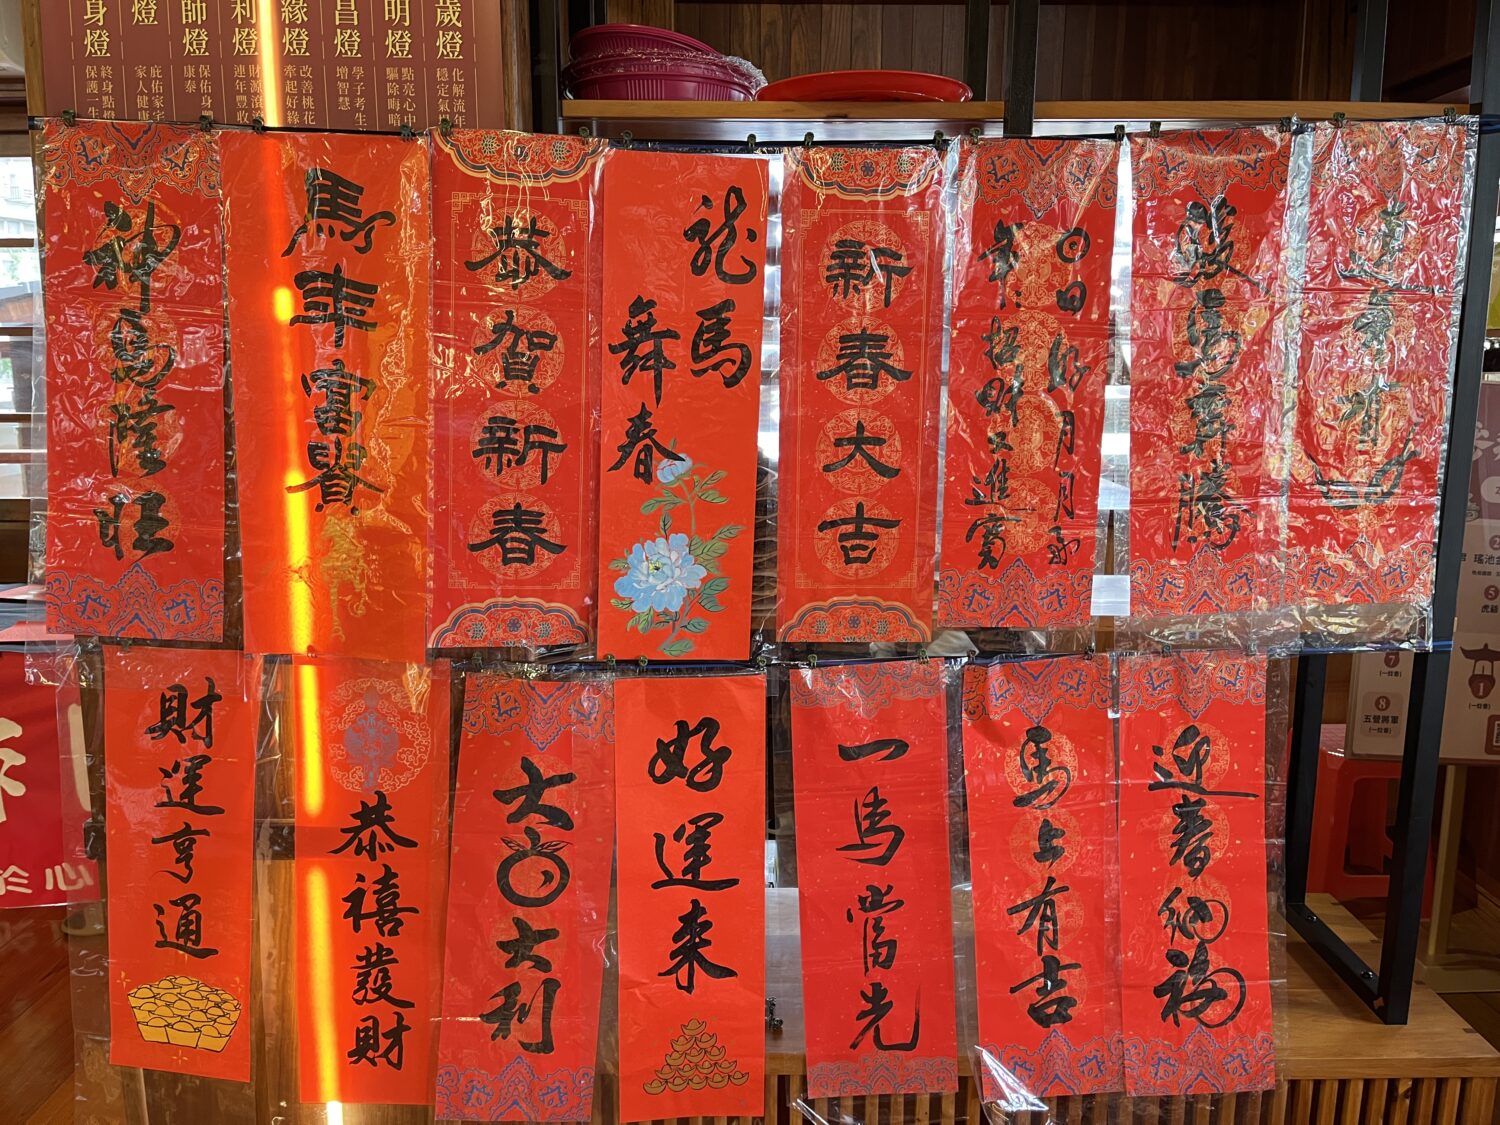 歲燈
化解流年
穩定氣
明燈
點亮心中
驅除晦暗
昌燈
學子考生
增智慧
緣燈
改善桃花
牽起好緣
利燈
財源滾滾
連年豐收
師燈
保佑身
康泰
燈
庇佑家宅
家人健康
身燈
終身點燈
保護一生
神馬隆旺
馬年富貴
恭賀新春
龍馬
舞春
新春大吉
日日好月月
年年招財又進寶
駿馬奔騰
財運亨通
恭禧發財
大吉大利
好運來
一馬當先
馬上有吉
迎春納福
於心
瑤池
虎爺
7
(一炷香)
8
五營將軍
(一炷香)
1
(一炷香)